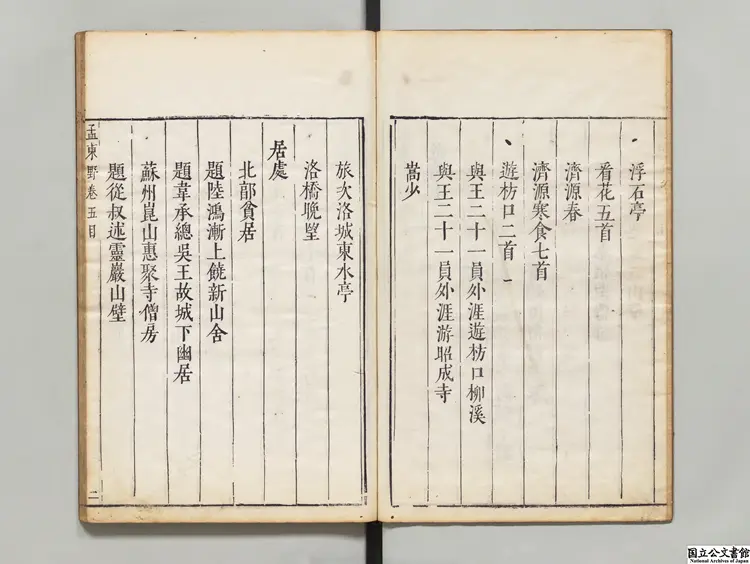 浮石亭
看花五首
濟源春
濟源寒食七首
遊枋口二首
與王二十一員外涯遊枋口柳溪
與王二十一員外涯游昭成寺
嵩少
旅次洛城東水亭
洛橋晚望
居處
北郭貧居
題陸鴻漸上饒新山舍
題韋承總吳王故城下幽居
蘇州崑山惠聚寺僧房
題從叔述靈巖山壁
孟東野卷五目
二
国立公文書館
National Archives of Japan